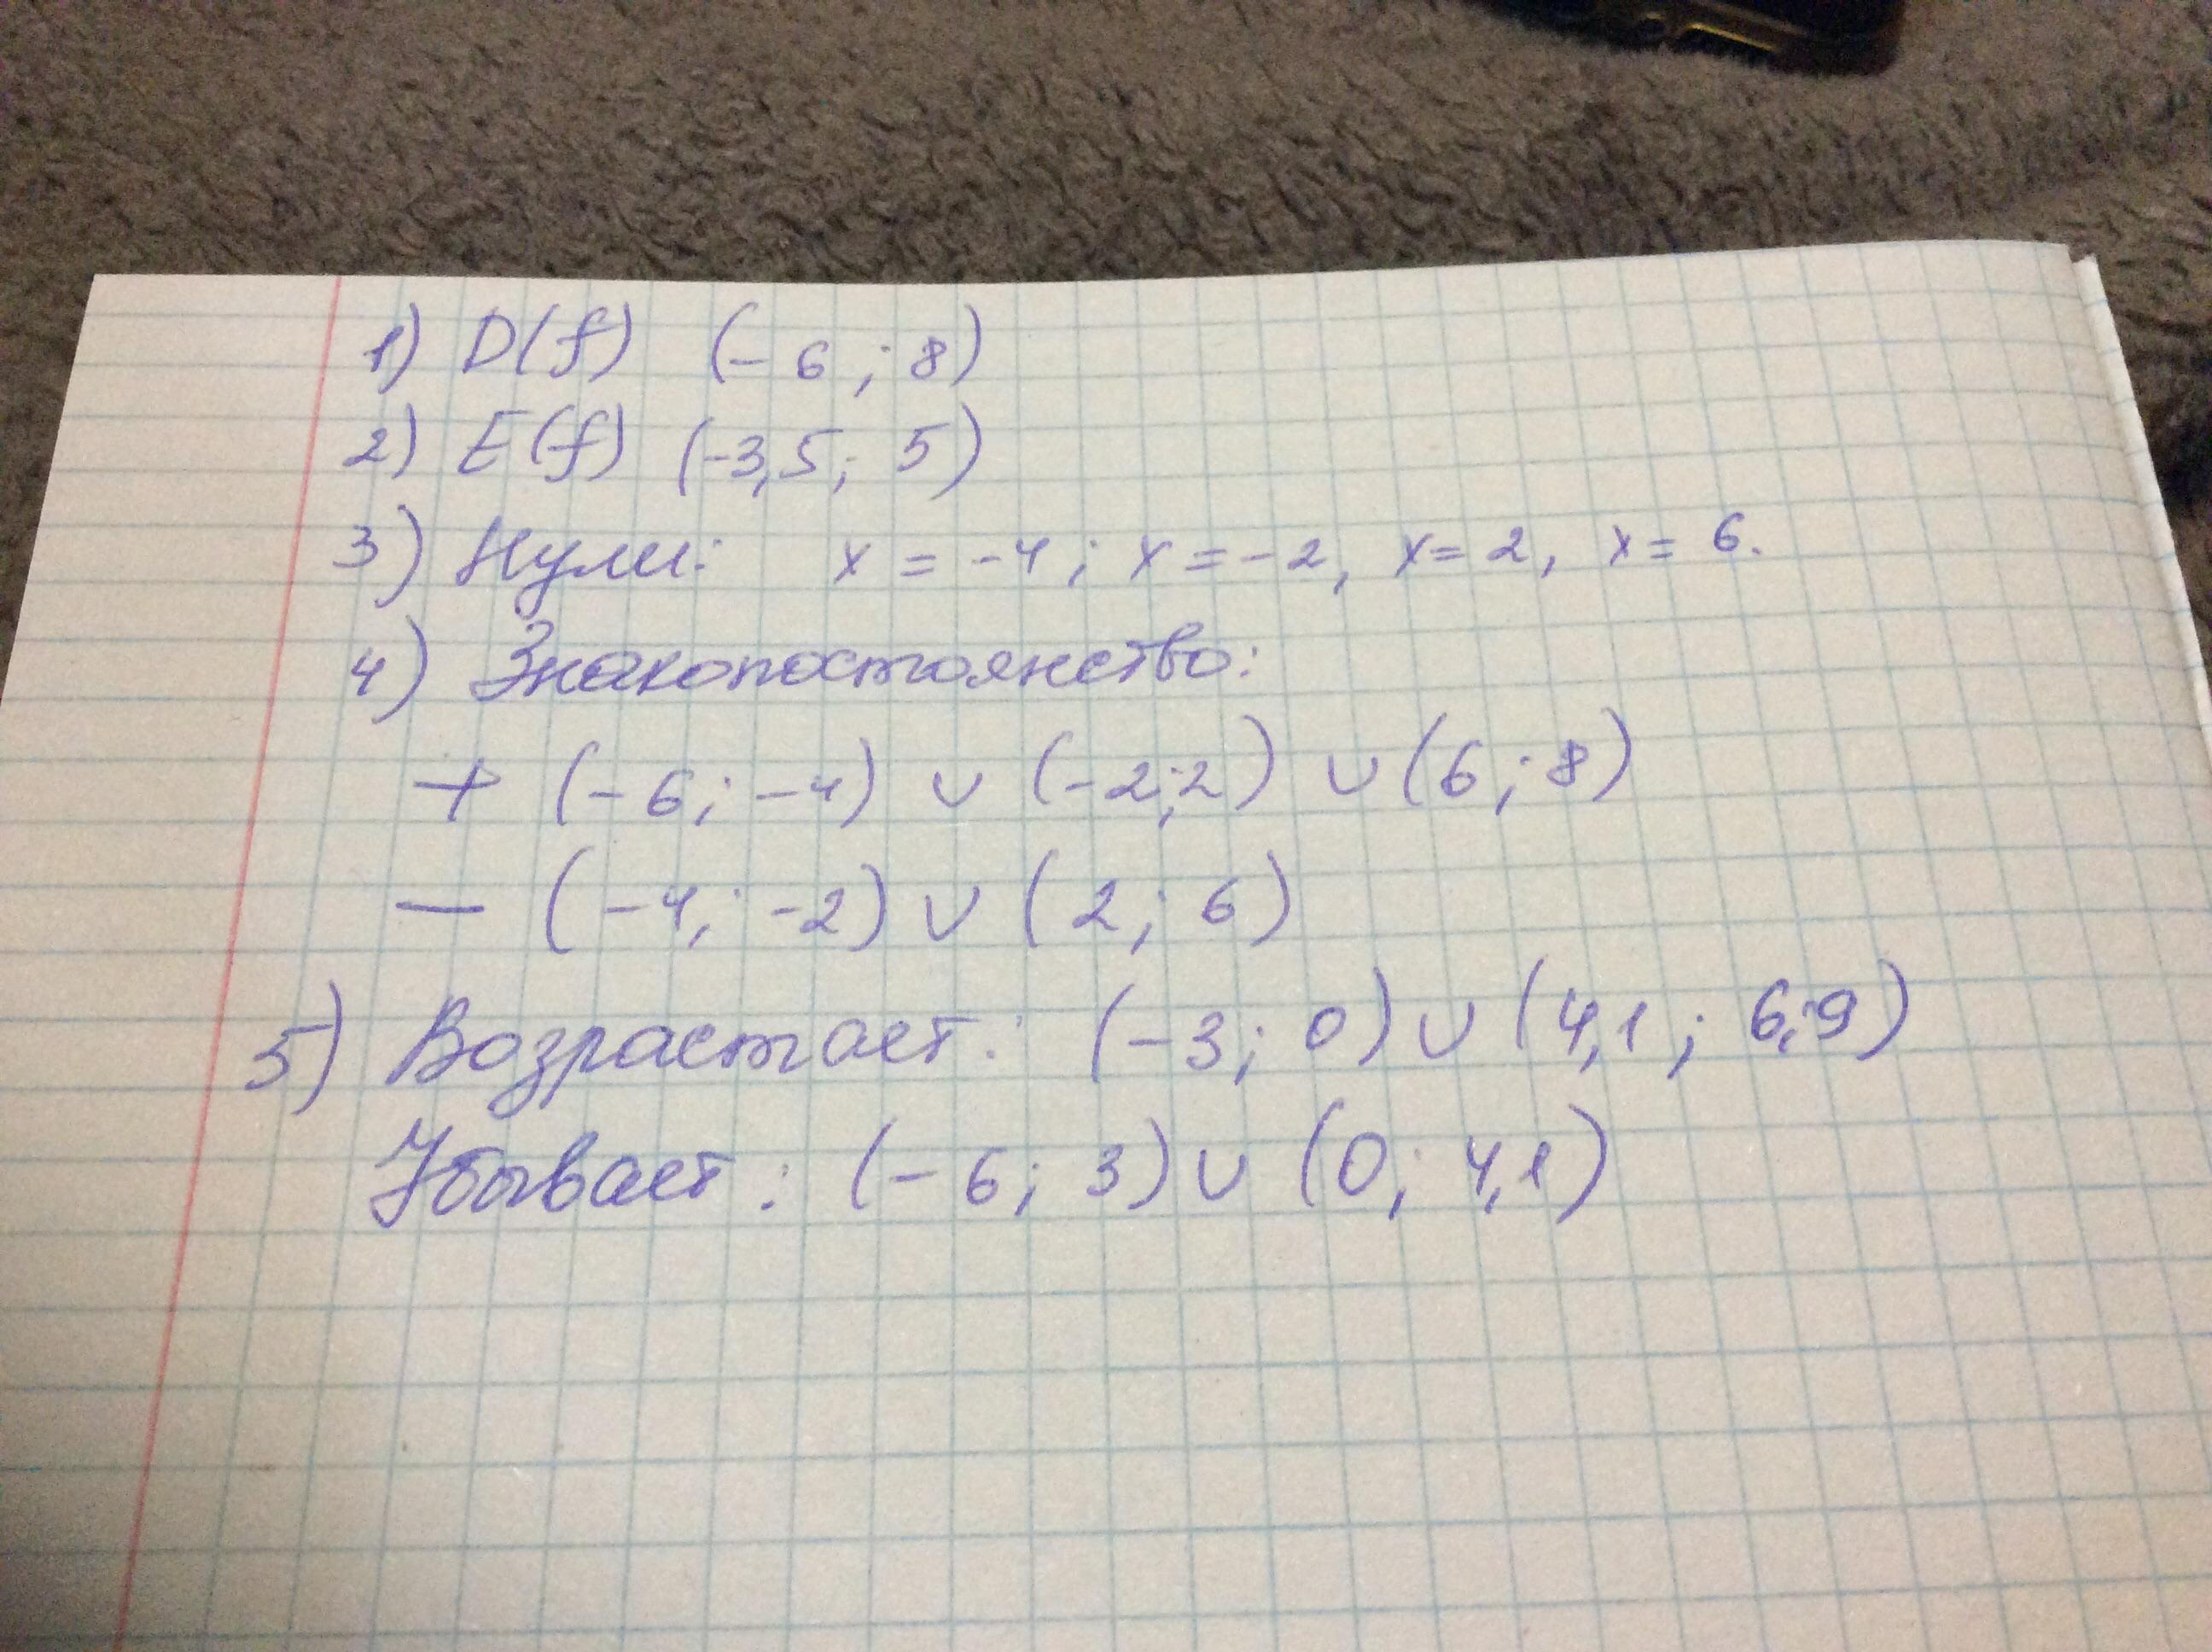 1) D(f) (-6; 8)
2) E(f) (-3,5; 5)
3) Нули: x = -4; x = -2, x = 2, x = 6.
4) Знакопостоянство:
+ (-6; -4) ∪ (-2;2) ∪ (6; 8)
— (-4; -2) ∪ (2; 6)
5) Возрастает: (-3; 0) ∪ (4,1; 6,9)
Убывает: (-6; 3) ∪ (0; 4,1)